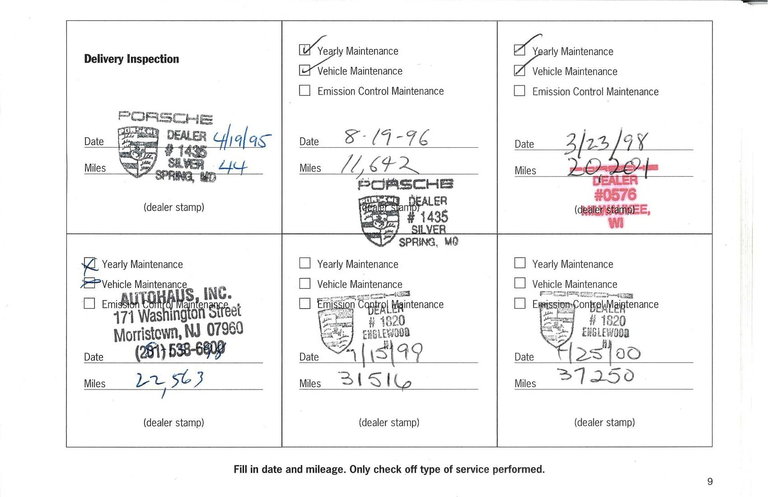 Delivery Inspection
PORSCHE
DEALER
# 1435
SILVER
SPRING, MD
Date 4/19/95
Miles 44
(dealer stamp)
Yearly Maintenance
Vehicle Maintenance
Emission Control Maintenance
Date 8-19-96
Miles 11,642
PORSCHE
(dealer stamp)
DEALER
# 1435
SILVER
SPRING, MD
Yearly Maintenance
Vehicle Maintenance
Emission Control Maintenance
Date 3/23/98
Miles 20,201
DEALER
#0576
(dealer stamp)
MILWAUKEE,
WI
Yearly Maintenance
Vehicle Maintenance
Emission Control Maintenance
AUTOHAUS, INC.
171 Washington Street
Morristown, NJ 07960
(201) 538-6800
Date
Miles 22,563
(dealer stamp)
Yearly Maintenance
Vehicle Maintenance
Emission Control Maintenance
DEALER
# 1820
ENGLEWOOD
NJ
Date /15/99
Miles 31516
(dealer stamp)
Yearly Maintenance
Vehicle Maintenance
Emission Control Maintenance
DEALER
# 1820
ENGLEWOOD
NJ
Date /25/00
Miles 37250
(dealer stamp)
Fill in date and mileage. Only check off type of service performed.
9